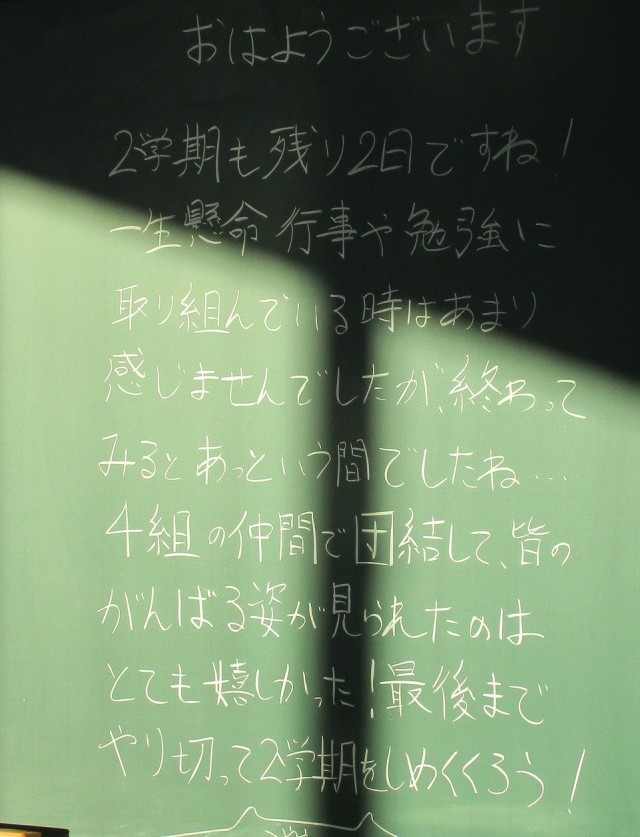 おはようございます
2学期も残り2日ですね!
一生懸命行事や勉強に
取り組んでいる時はあまり
感じませんでしたが、終わって
みるとあっという間でしたね…
4組の仲間で団結して、皆の
がんばる姿が見られたのは
とても嬉しかった!最後まで
やり切って2学期をしめくくろう!